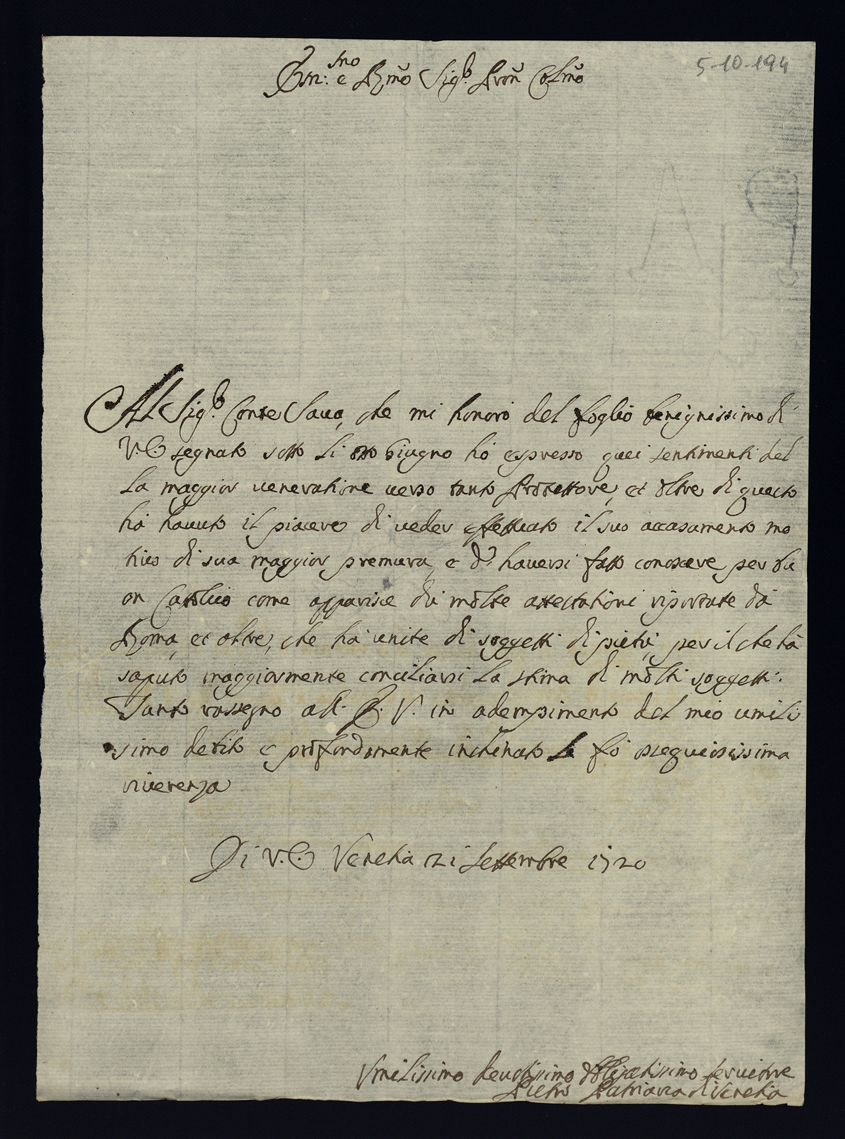 5-10-194
Em:mo e Rmo Sig.r Pron Colmo
Al Sig.r Conte Sava, che mi honorò del foglio benignissimo di
V.E. segnato sotto li otto Giugno hò espresso quei sentimenti del
la maggior veneratione verso tanto Protettore, et oltre di questo
hà havuto il piacere di veder effettuato il suo accasamento mo
tivo di sua maggior premura, e d' haversi fatto conoscere per bu
on Cattolico come apparisce da molte attestationi riportate da
Roma, et oltre, che hà unite di soggetti di pietà, per il che hà
saputo maggiormente conciliarsi la stima di molti soggetti.
Tanto rassegno all' E. V. in adempimento del mio umilis
simo debito e profondamente inchinato le fò ossequiosissima
riverenza
Di V.E. Venetia 21 Settembre 1720
Umilissimo Devotissimo Obligatissimo servitore
Pietro Patriarca di Venetia